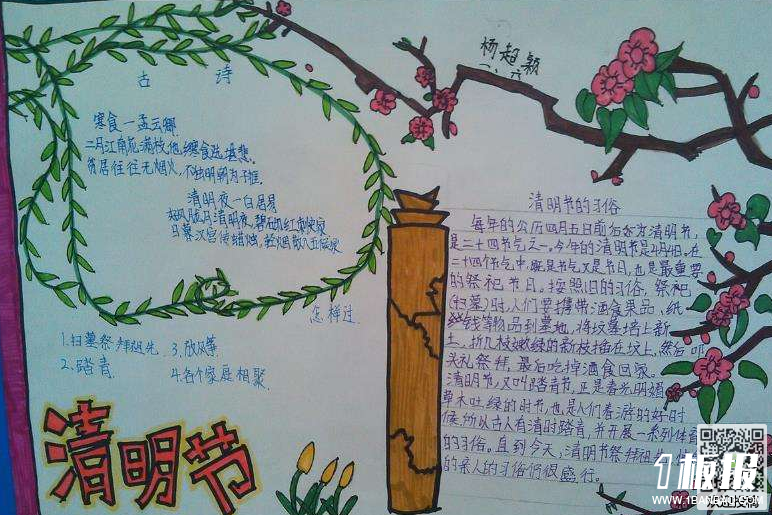 古诗
寒食一孟云卿
二月江南花满枝,他乡寒食远堪悲。
贫居往往无烟火,不独明朝为子推.
清明夜一白居易
怎样过
1.扫墓祭拜祖先
3.放风筝
2.踏青
4.各个家庭相聚
清明节
杨超颖
一、六
清明节的习俗
每年的公历四月五日前后为清明节,
是二十四节气之一,今年的清明节是4月4日。在
二十四个节气中,既是节气又是节日,也是最重要
的祭祀节日。按照旧的习俗,祭祀
(扫墓)时,人们要携带酒食果品,纸
钱等物品到墓地,将坟墓培上新
土,折几枝嫩绿的新枝插在坟上,然后叩
头礼祭拜,最后吃掉酒食回家。
清明节,又叫踏青节,正是春光明媚
草木吐绿的时节,也是人们春游的好时
候,所以古人有清明踏青,并开展一系列体育
的习俗。直到今天,清明节祭拜祖
的亲人的习俗仍很盛行。
1板报
WWW.1BANBAO.COM
欢迎投稿